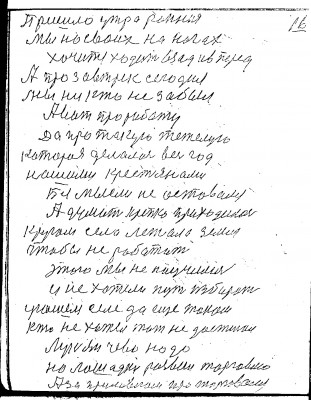 16
Пришло утро раиния
Мы на своих на ногах
хочиш ходит взад и в перед
А про завтрик сегодня
мы ни кто не забыл
А вот про работу
Да про такую тежелую
которая делалас вес год
нашими крестьянами
Бы мысли не оставалис
А думат крепко приходилос
Кругом села лежало земля
чтобы не работат
этого мы не
и не хотели пут избират
нашем селе да еще таком
кто не хотел тот не достиг
чево надо
на лошадях развели торговлю
А за про торговали